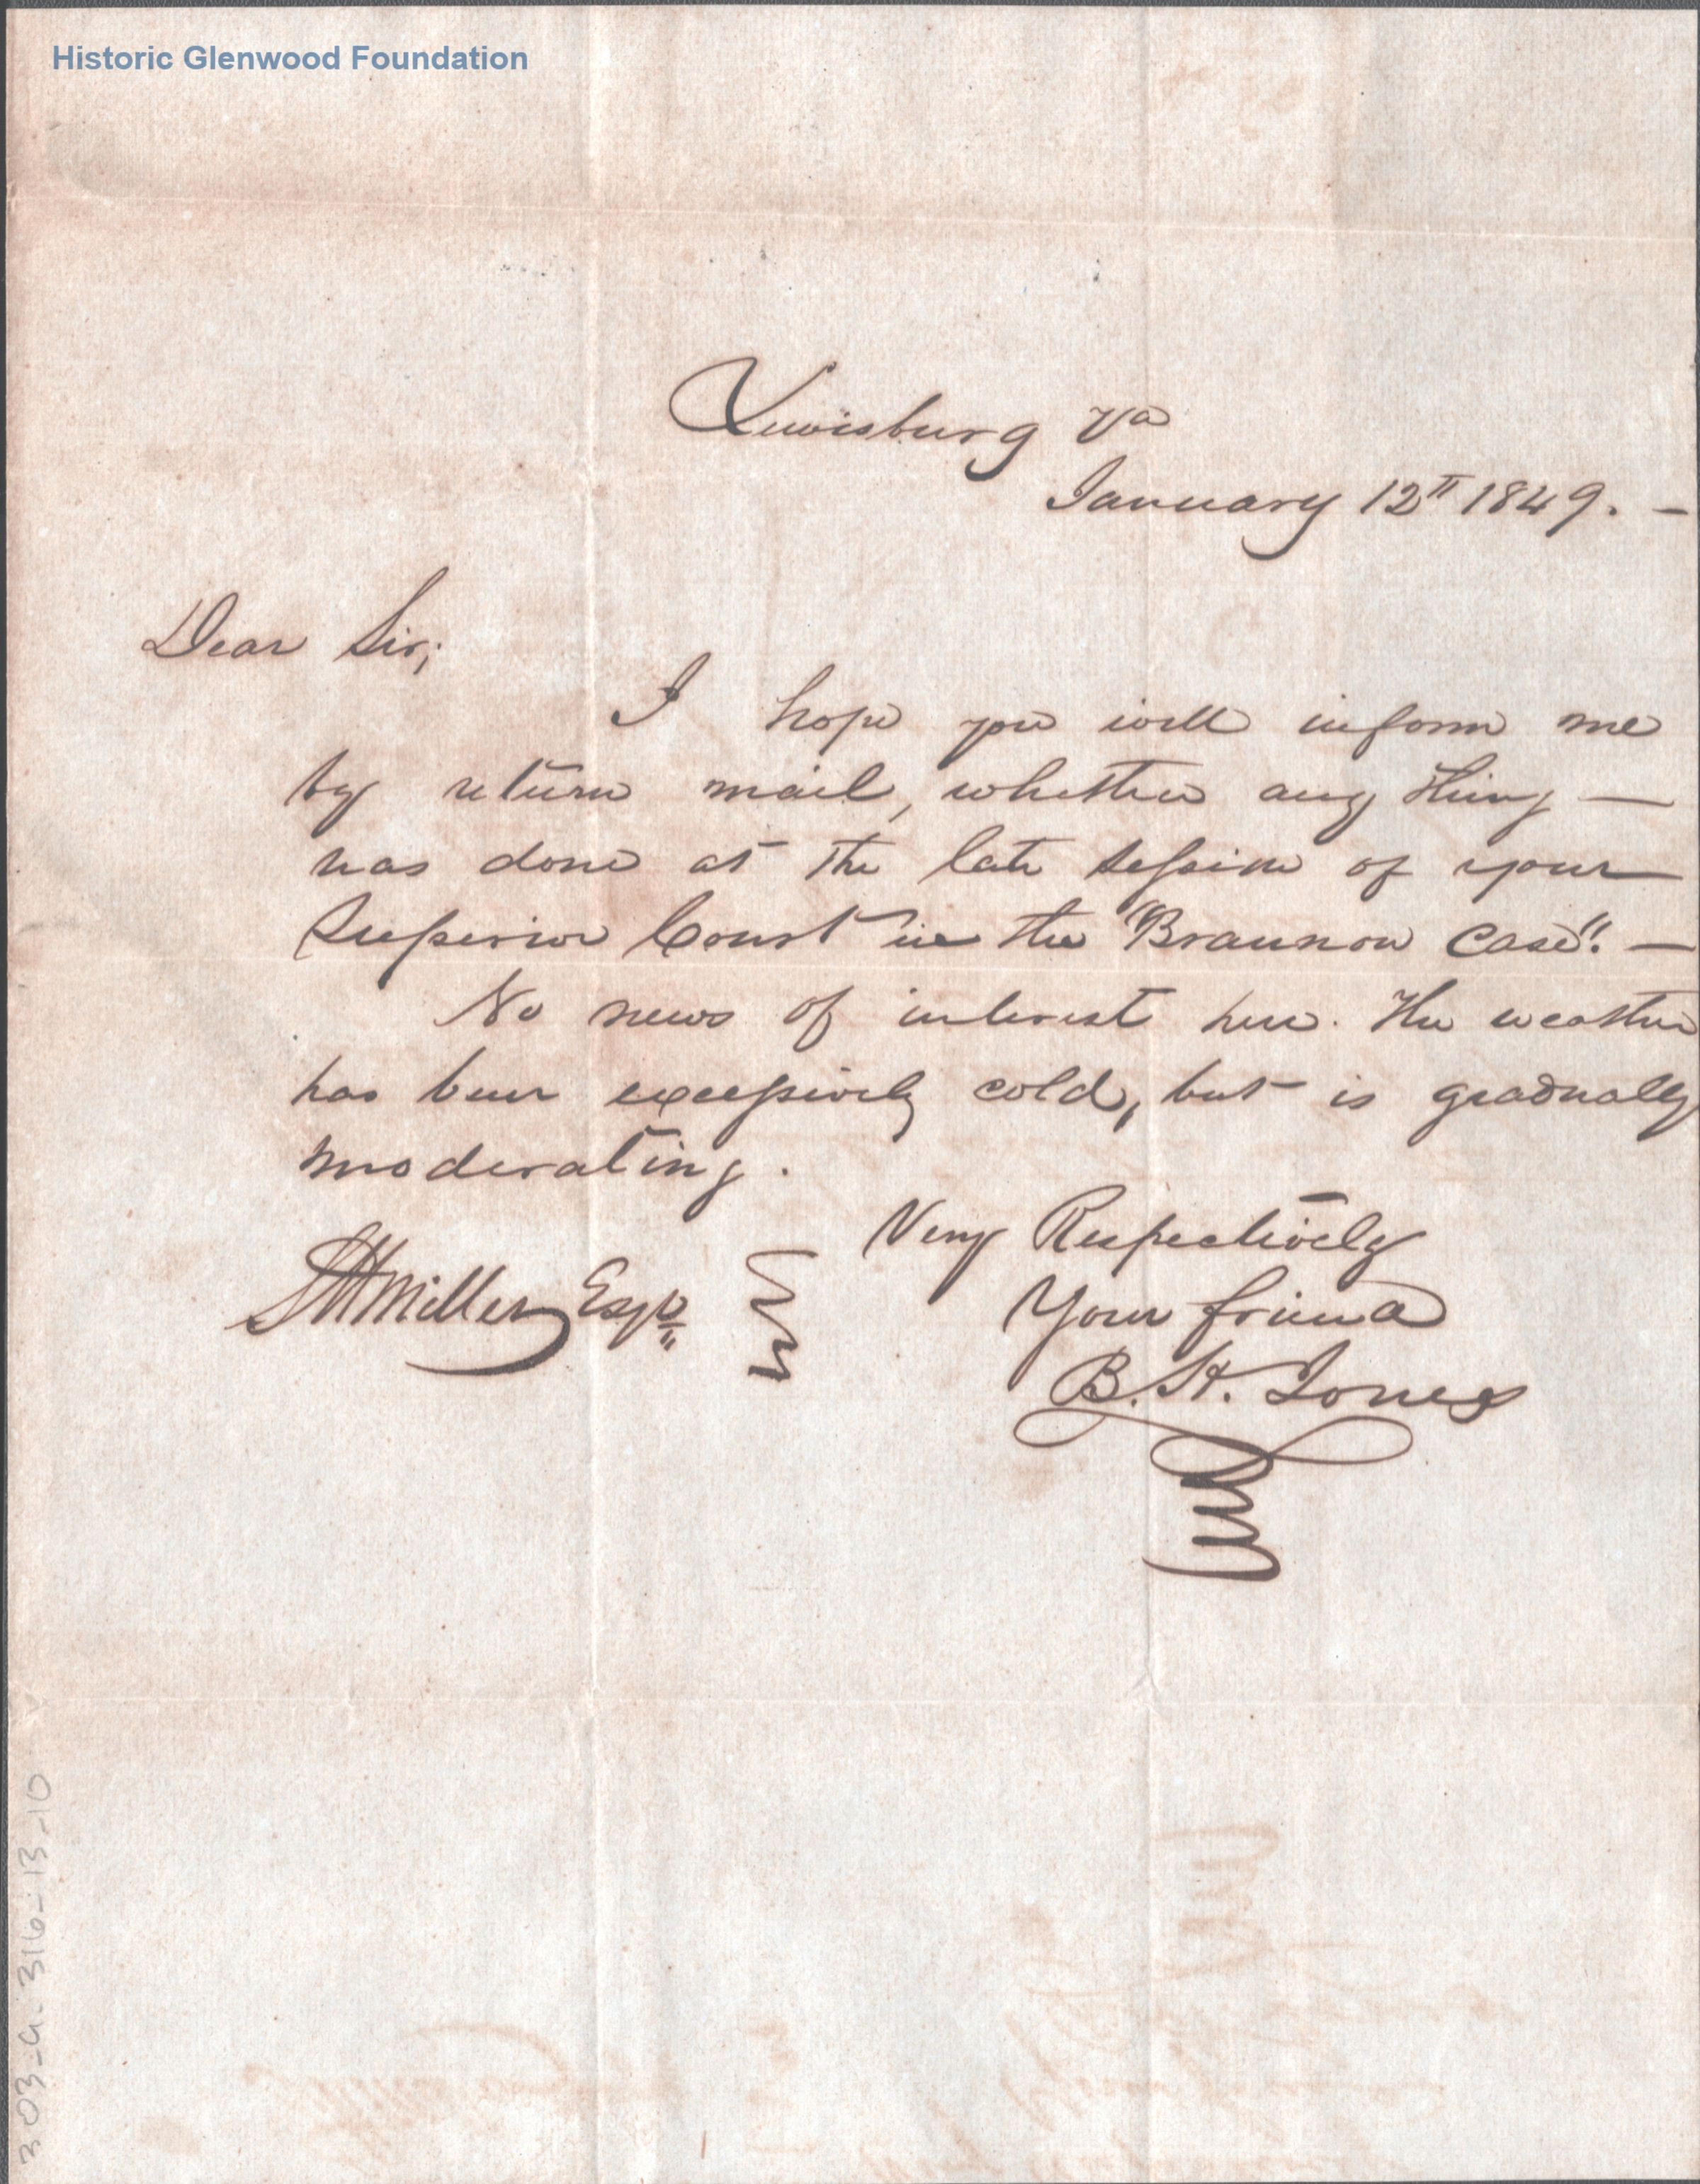 Historic Glenwood Foundation
Lewisburg Va
January 12" 1849. –
Dear Sir;
I hope you will inform me
by return mail, whether any thing —
was done at the late session of your
Superior Court in the "Brannon Case". —
No news of interest here. The weather
has been excessively cold, but is gradually
moderating.
Very Respectively
Your friend
B. H. Jones
Miller Esqr
303-a-316-13-10